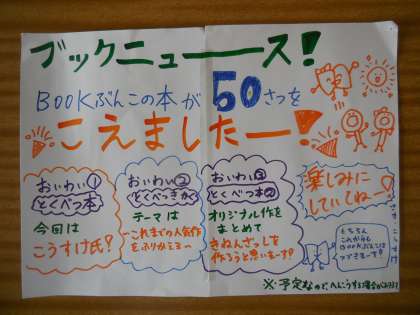 ブックニュース!
BOOKぶんこの本が50さつを
こえましたー!
おいわい①
とくべつ本
今回は
こうすけ氏?
おいわい②
とくべつきかく
テーマは
〜これまでの人気作
をふりかえる〜
おいわい③
とくべつ本②
オリジナル作を
まとめて
きねんざっしを
作ろうと思いまーす?
楽しみに
していてねー
もちろん
これからも
BOOKぶんこは
つづきまーす?
※予定なので、へんこうする場合があります